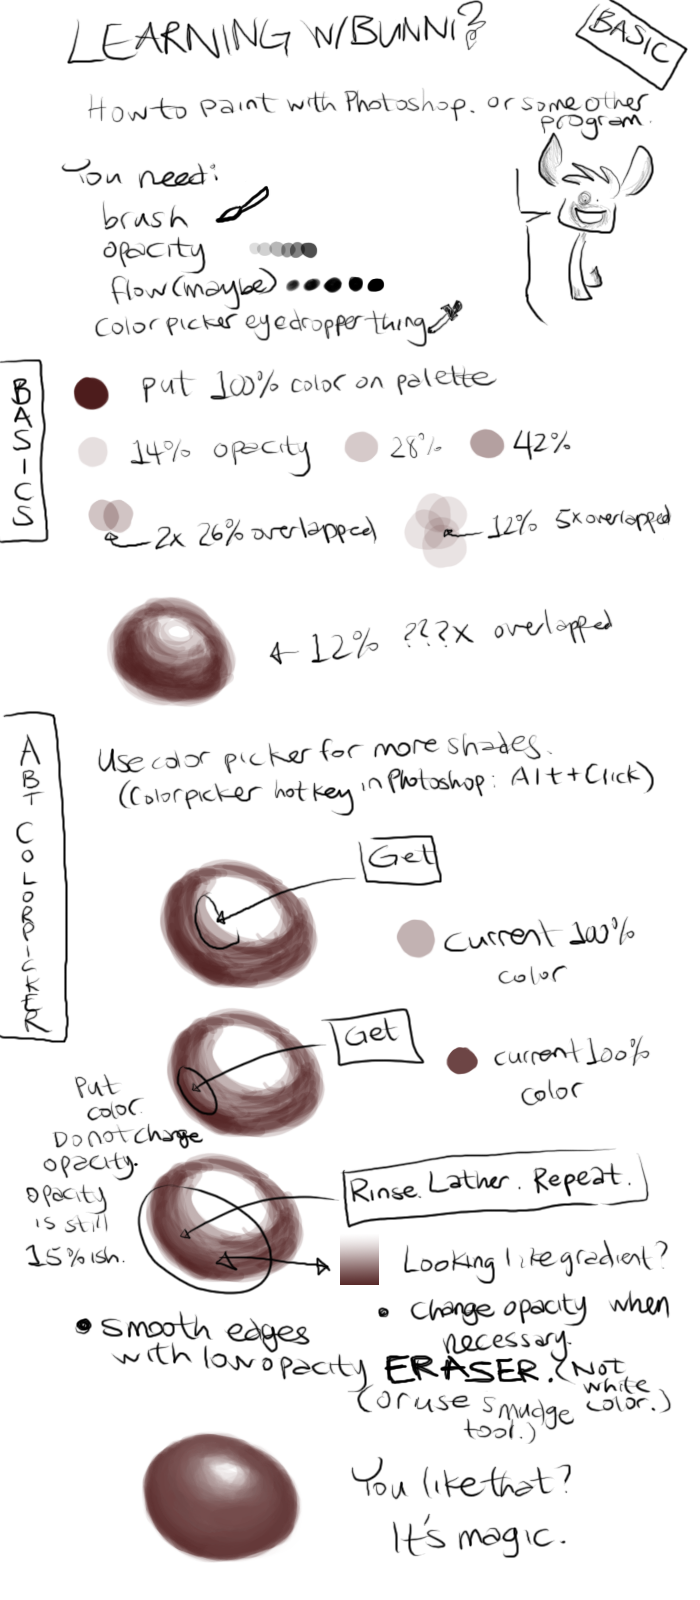 LEARNING W/BUNNI?
BASIC
How to paint with Photoshop. or some other
program.
You need:
brush
opacity
flow (maybe)
color picker eyedropper thing
BASICS
put 100% color on palette
14% opacity 28% 42%
2x 26% overlapped
12% 5x overlapped
12% ???x overlapped
ABT COLORPICKER
Use color picker for more shades.
(Colorpicker hotkey in Photoshop: Alt+Click)
Get
Current 100%
color
Get
current 100%
color
Put
color.
Do not change
opacity.
opacity
is still
15%ish.
Rinse. Lather. Repeat.
Looking like gradient?
• change opacity when
necessary.
• smooth edges
with low opacity ERASER. (Not
white
color.)
(or use smudge
tool.)
You like that?
It's magic.